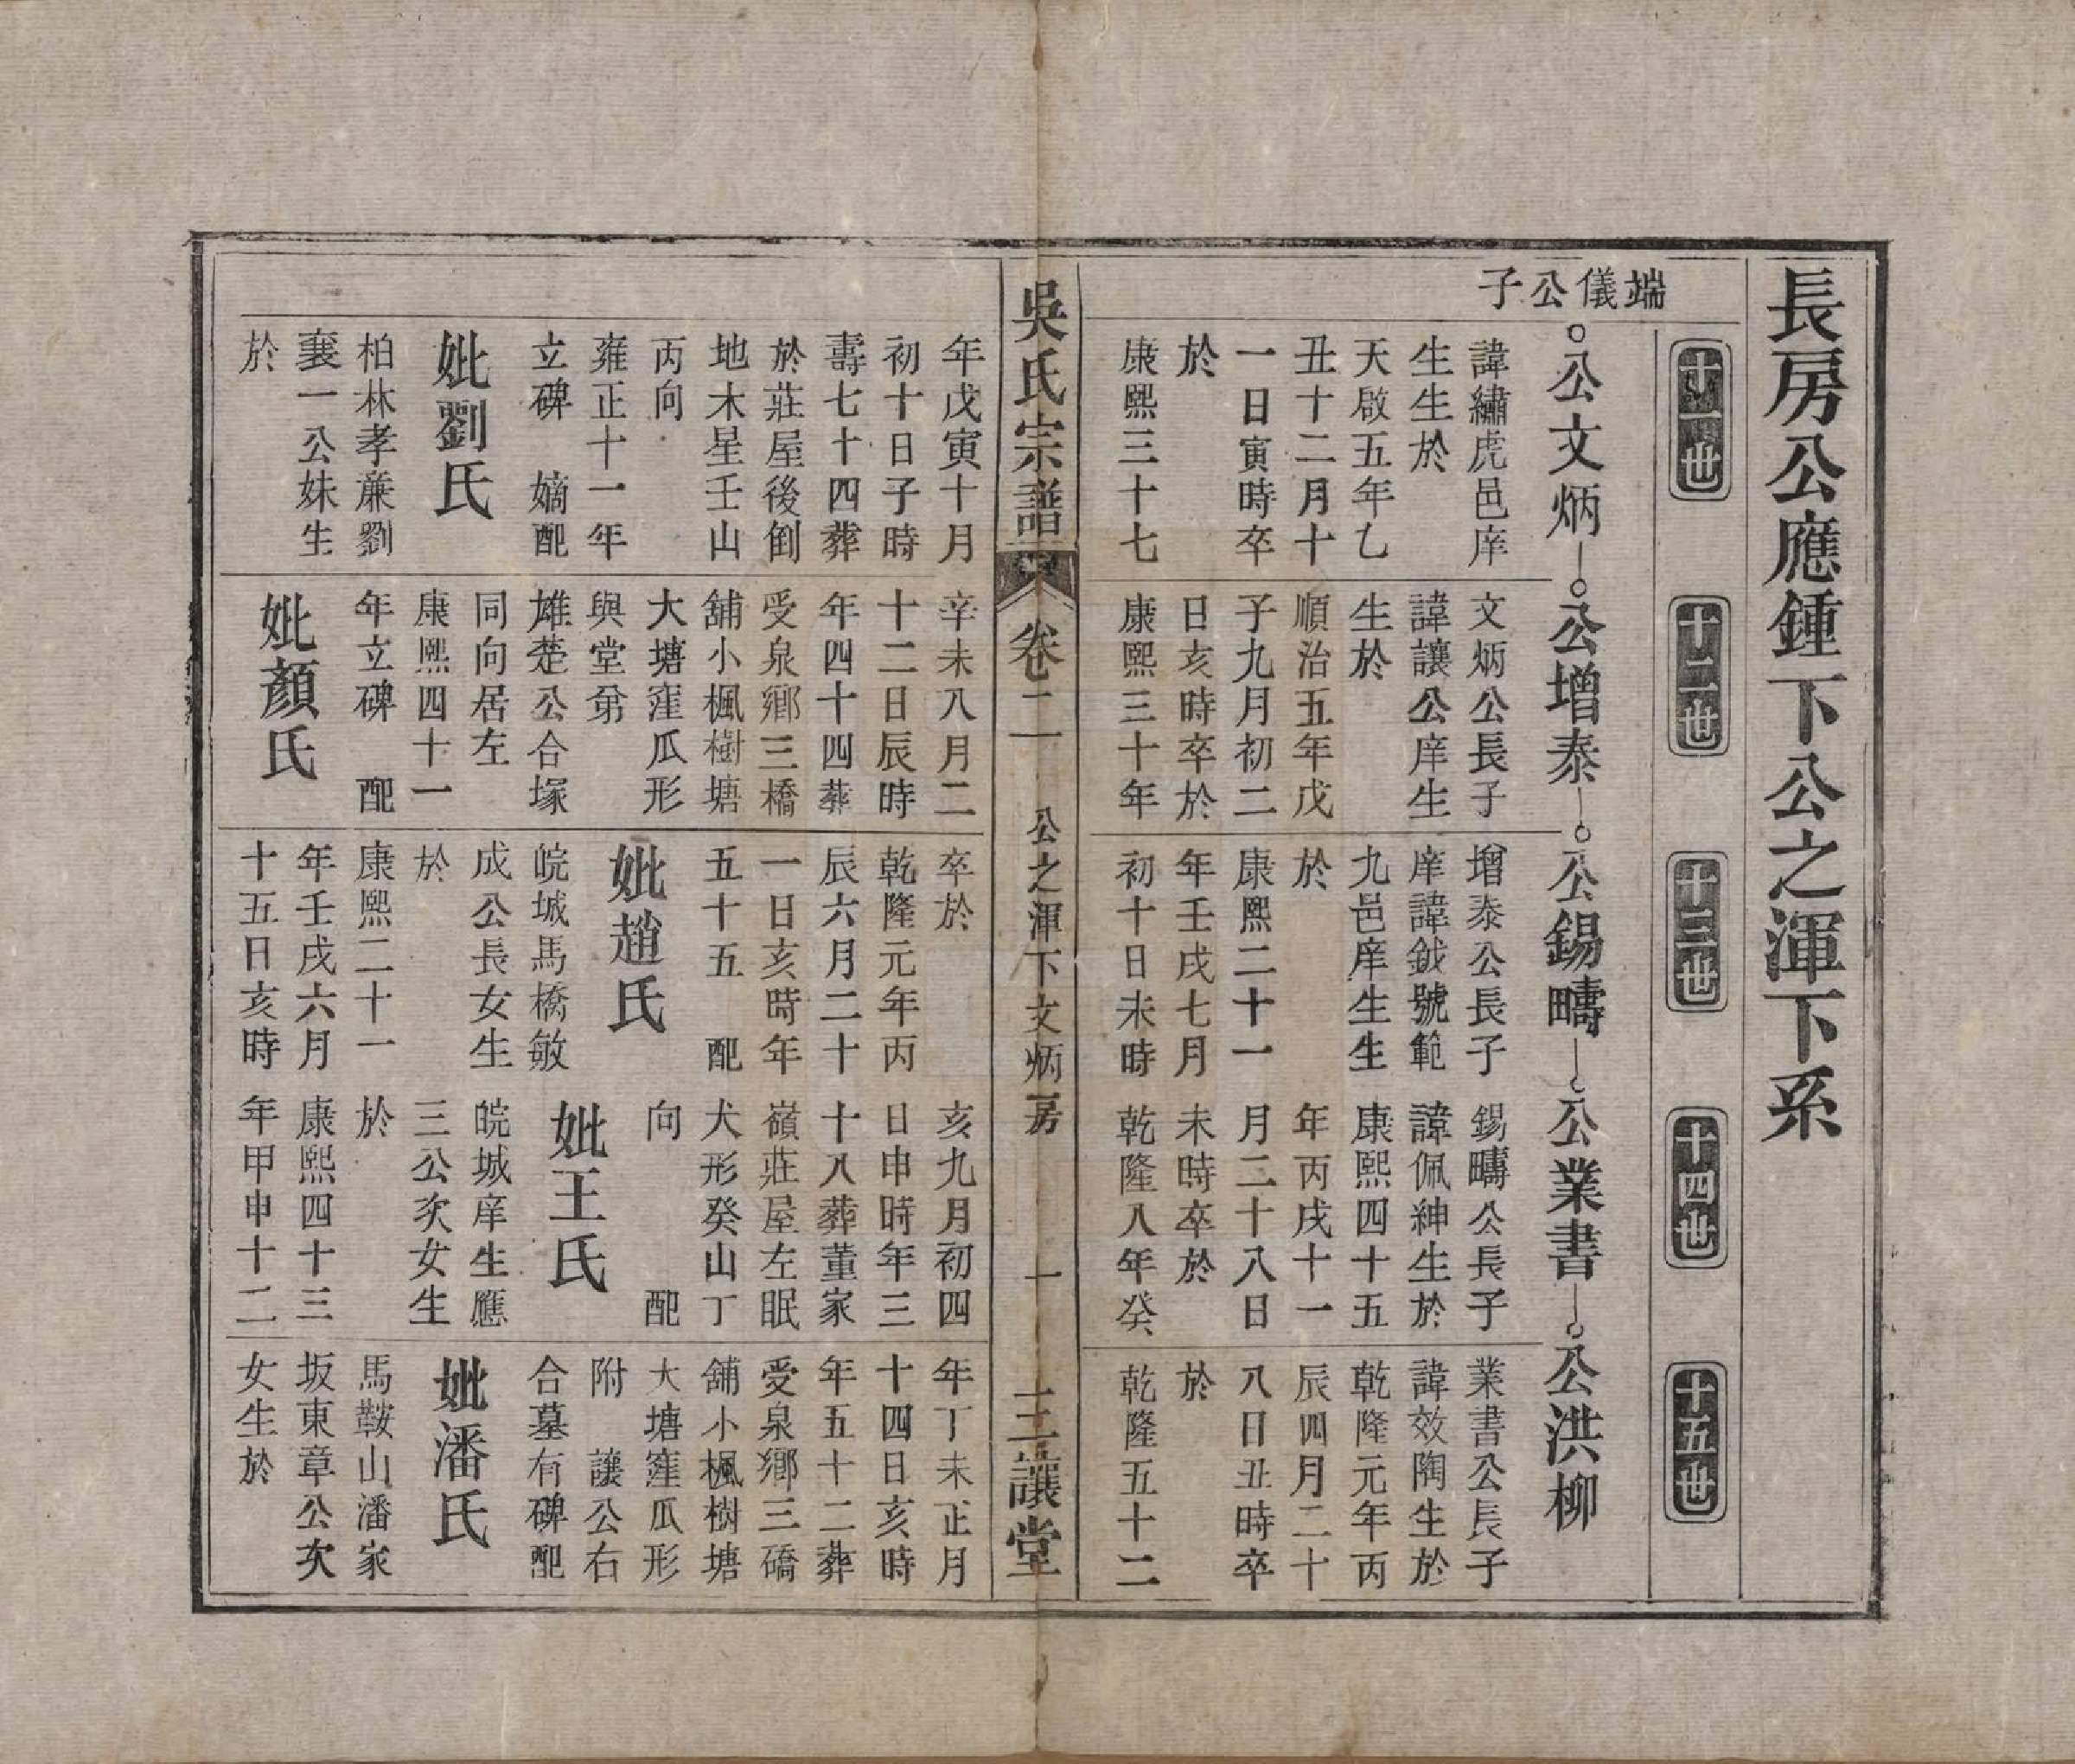 長房公應鍾下公之渾下系
十一世
十二世
十三世
十四世
十五世
端儀公子
公文炳
諱繡虎邑庠
生生於
天啟五年乙
丑十二月十
一日寅時卒
於
康熙三十七
公增泰
文炳公長子
諱讓公庠生
生於
順治五年戊
子九月初二
日亥時卒於
康熙三十年
公錫疇
增泰公長子
庠諱鉞號範
九邑庠生生
於
康熙二十一
年壬戌七月
初十日未時
公業書
錫疇公長子
諱佩紳生於
康熙四十五
年丙戌十一
月二十八日
未時卒於
乾隆八年癸
公洪柳
業書公長子
諱效陶生於
乾隆元年丙
辰四月二十
八日丑時卒
於
乾隆五十二
吳氏宗譜
卷二
公之渾下文炳房
一
三讓堂
年戊寅十月
初十日子時
壽七十四葬
於莊屋後倒
地木星壬山
丙向
雍正十一年
立碑 嫡配
妣劉氏
柏林孝亷劉
襄一公妹生
於
辛未八月二
十二日辰時
年四十四葬
受泉鄉三橋
舖小楓樹塘
大塘窪瓜形
與堂弟
雄楚公合塚
同向居左
康熙四十一
年立碑 配
妣顏氏
卒於
乾隆元年丙
辰六月二十
一日亥時年
五十五 配
妣趙氏
皖城馬橋敏
成公長女生
於
康熙二十一
年壬戌六月
十五日亥時
亥九月初四
日申時年三
十八葬董家
嶺莊屋左眠
犬形癸山丁
向 配
妣王氏
皖城庠生應
三公次女生
於
康熙四十三
年甲申十二
年丁未正月
十四日亥時
年五十二葬
受泉鄉三礄
舖小楓樹塘
大塘窪瓜形
附 讓公右
合墓有碑配
妣潘氏
馬鞍山潘家
坂東章公次
女生於